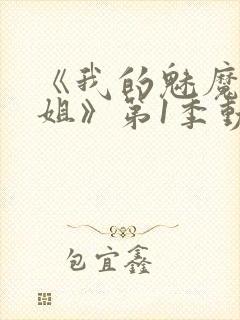 《我的魅魔
姐》第1季動
包宜鑫